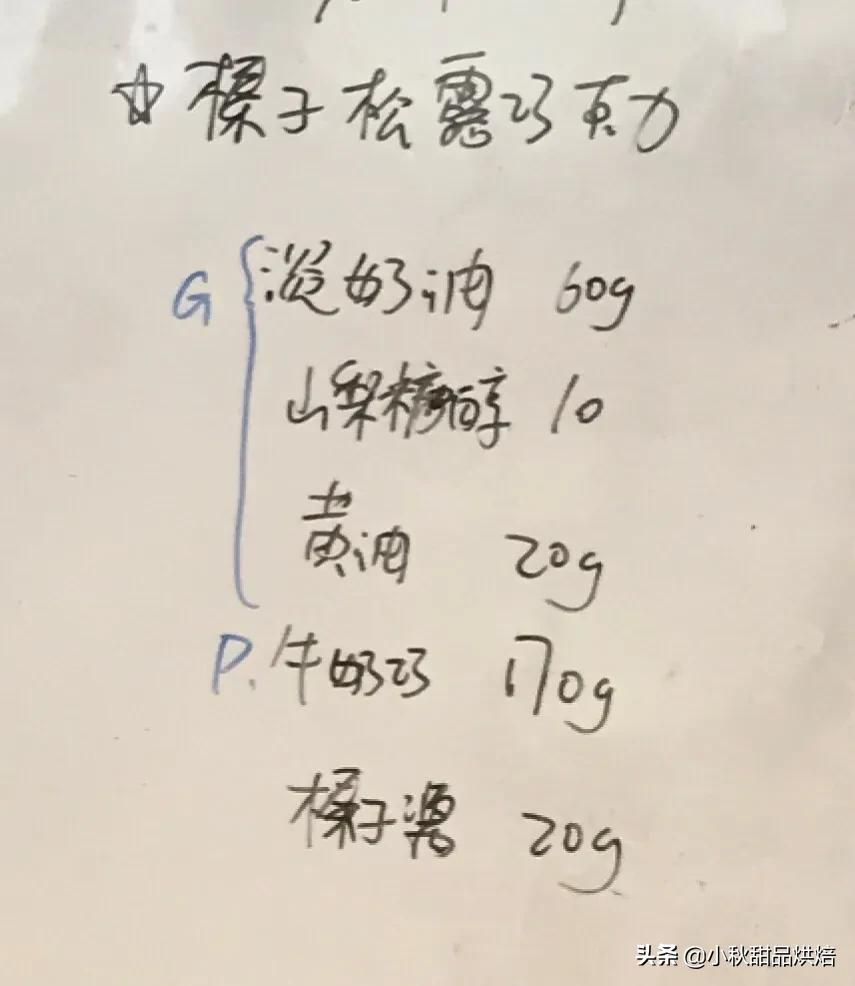 ☆榛子松露巧克力
G 淡奶油 60g
山梨糖醇 10
黄油 20g
P. 牛奶巧 170g
榛子酱 20g
头条 @小秋甜品烘焙